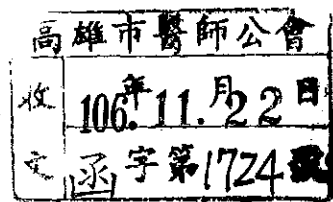 高雄市醫師公會
收文
106年11.月22日
函字第1724號